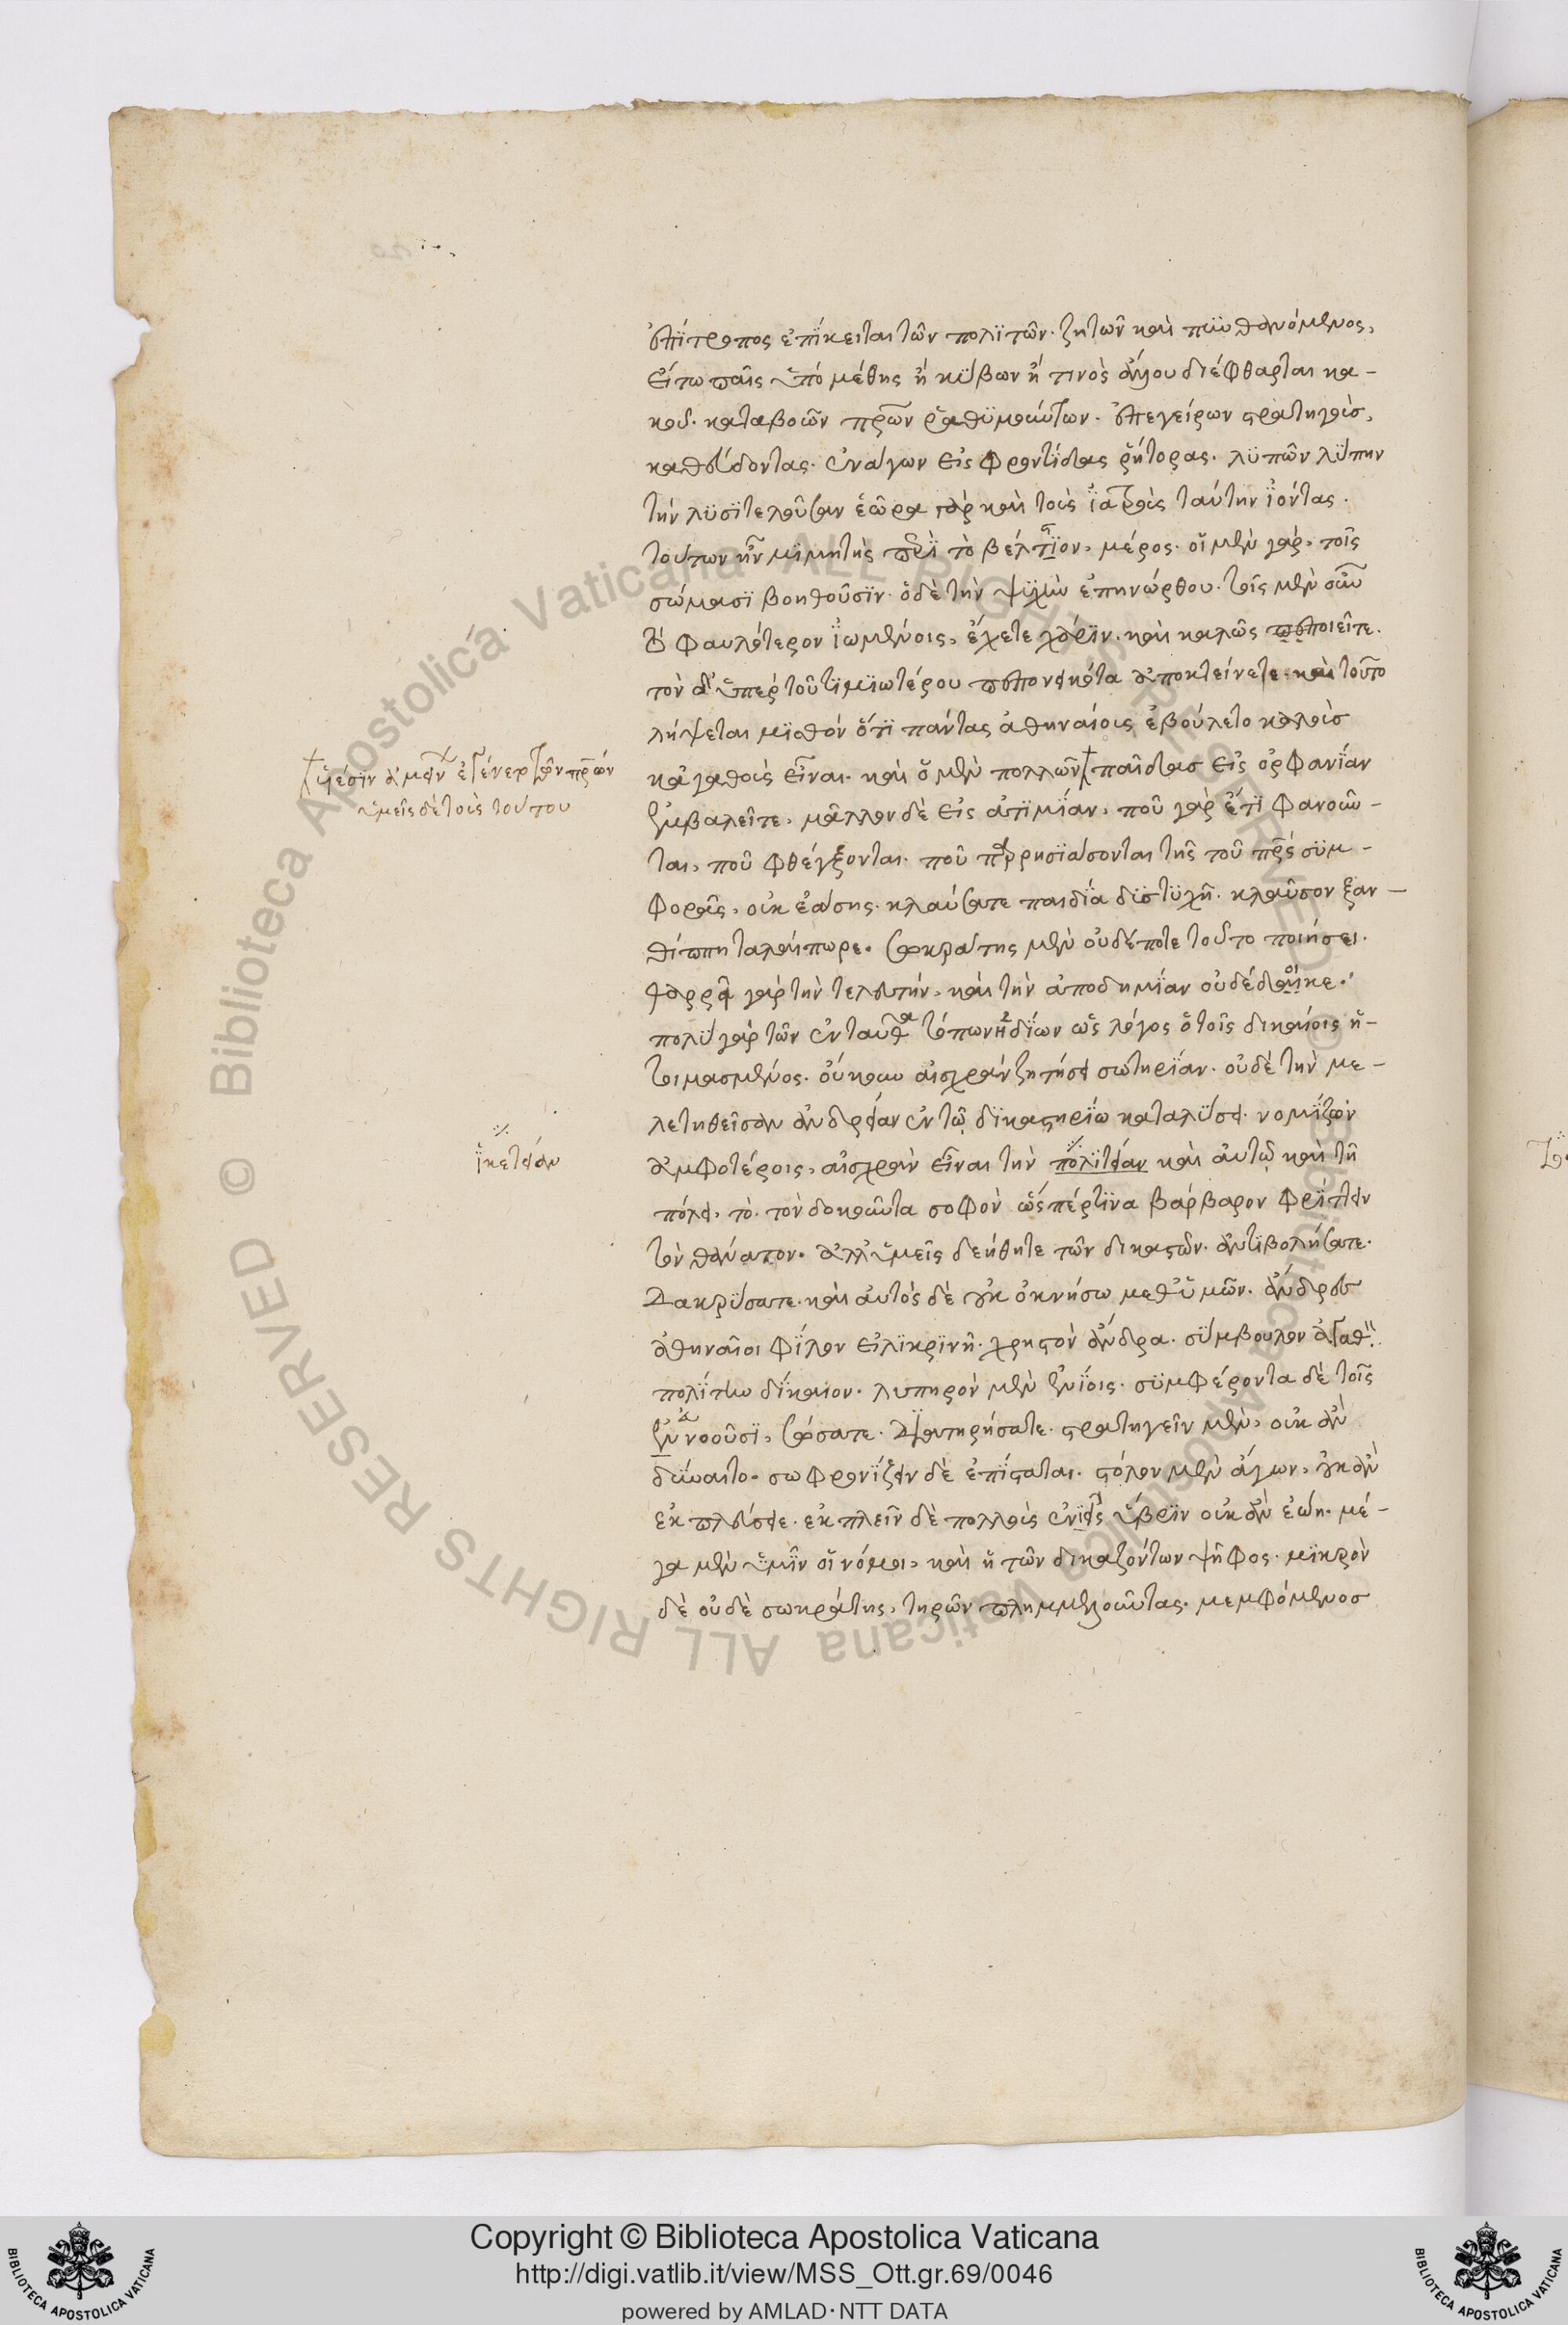 ἐπίτροπος ἐπΐκειται τῶν πολϊτῶν· ζητῶν καὶ πϋνθανόμενος,
εἴ τω παῖς ὑπὸ μέθης ἢ κΰβων ἤ τινὸς ἄλλου διέφθαρται κα-
κοῦ· καταβοῶν πρων ῥαθϋμούντων· ἐπεγείρων στρατηγοὺς,
καθεύδοντας· ἐνάγων εἰς φροντίδας ῥήτορας· λϋπῶν λΰπην
τὴν λϋσϊτελοῦσαν ἑώρα γὰρ καὶ τοὺς ἰατροὺς ταύτην ἰόντας·
τούτων ἦν μϊμητὴς περὶ τὸ βέλτϊον, μέρος· οἱ μὲν γὰρ, τοῖς
σώμασϊ βοηθοῦσϊν· ὁ δὲ τὴν ψυχὴν ἐπηνώρθου· τοῖς μὲν οὖν
τὸ φαυλότερον ἰωμένοις, ἔχετε χάρϊν· καὶ καλῶς ποιεῖτε·
τὸν δ' ὑπὲρ τοῦ τϊμϊωτέρου πεπονηκότα ἀποκτείνετε καὶ τοῦτο
λήψεται μϊσθὸν ὅτϊ πάντας ἀθηναίους ἐβούλετο καλοὺς
κἀγαθοὺς εἶναι· καὶ ὁ μὲν πολλῶν παῖδας εἰς ὀρφανΐαν
ἐμβαλεῖτε, μᾶλλον δὲ εἰς ἀτϊμΐαν, ποῦ γὰρ ἔτϊ φανοῦν-
ται, ποῦ φθέγξονται· ποῦ παρρησϊάσονται τῆς τοῦ πρς συμ-
φορᾶς, οὐκ ἐώσης· κλαύσατε παιδΐα δϋστϋχῆ· κλαῦσον ξαν-
θίππη ταλαίπωρε· σωκράτης μὲν οὐδέποτε τοῦτο ποιήσει·
θαρρεῖ γὰρ τὴν τελευτὴν, καὶ τὴν ἀποδημΐαν οὐ δέδοικε·
πολὺ γὰρ τῶν ἐνταῦθα τόπων ἡδΐων ὡς λόγος ὁ τοῖς δικαίοις ἡ-
τοιμασμένος· οὔκουν αἰσχρὰν ζητήσει σωτηρΐαν· οὐδὲ τὴν με-
λετηθεῖσαν ἀνδρείαν ἐν τῷ δϊκαστηρΐω καταλΰσει· νομΐζων
ἀμφοτέροις, αἰσχρὰν εἶναι τὴν πολϊτείαν καὶ αὐτῶ καὶ τῆ
πόλει, τὸ· τὸν δοκοῦντα σοφὸν ὥσπέρ τϊνα βάρβαρον φρΐττειν
τὸν θάνατον· ἀλλ' ὑμεῖς δεήθητε τῶν δικαστῶν· ἀντϊβολήσατε·
δακρΰσατε· καὶ αὐτὸς δὲ οὐκ ὀκνήσω μεθ' ὑμῶν· ἄνδρες
ἀθηναῖοι φΐλον εἰλϊκρϊνῆ· χρηστὸν ἄνδρα· σΰμβουλον ἀγαθ
πολΐτην δΐκαιον· λυπηρὸν μὲν ἐνΐοις· συμφέροντα δὲ τοῖς
νοοῦσϊ, σώσατε· διατηρήσατε· στρατηγεῖν μὲν, οὐκ ἂν
δύναιτο· σωφρονΐζειν δὲ ἐπΐσταται· στόλον μὲν ἄγων, οὐκ ἂν
ἐκπλεύσειε· ἐκπλεῖν δὲ πολλοὺς ὕβρϊν οὐκ ἂν ἐώη· μέ-
γα μὲν ὑμῖν οἱ νόμοι, καὶ ἡ τῶν δικαζόντων ψῆφος· μϊκρὸν
δὲ οὐδὲ σωκράτης, τηρῶν πλημμελοῦντας· μεμφόμενος
ὑμεῖς δὲ τοὺς τούτου
ϊκετείαν
Copyright © Biblioteca Apostolica Vaticana
http://digi.vatlib.it/view/MSS_Ott.gr.69/0046
powered by AMLAD·NTT DATA
BIBLIOTECA APOSTOLICA VATICANA
BIBLIOTECA APOSTOLICA VATICANA
© Biblioteca Apostolica Vaticana ALL RIGHTS RESERVED
© Biblioteca Apostolica Vaticana ALL RIGHTS RESERVED